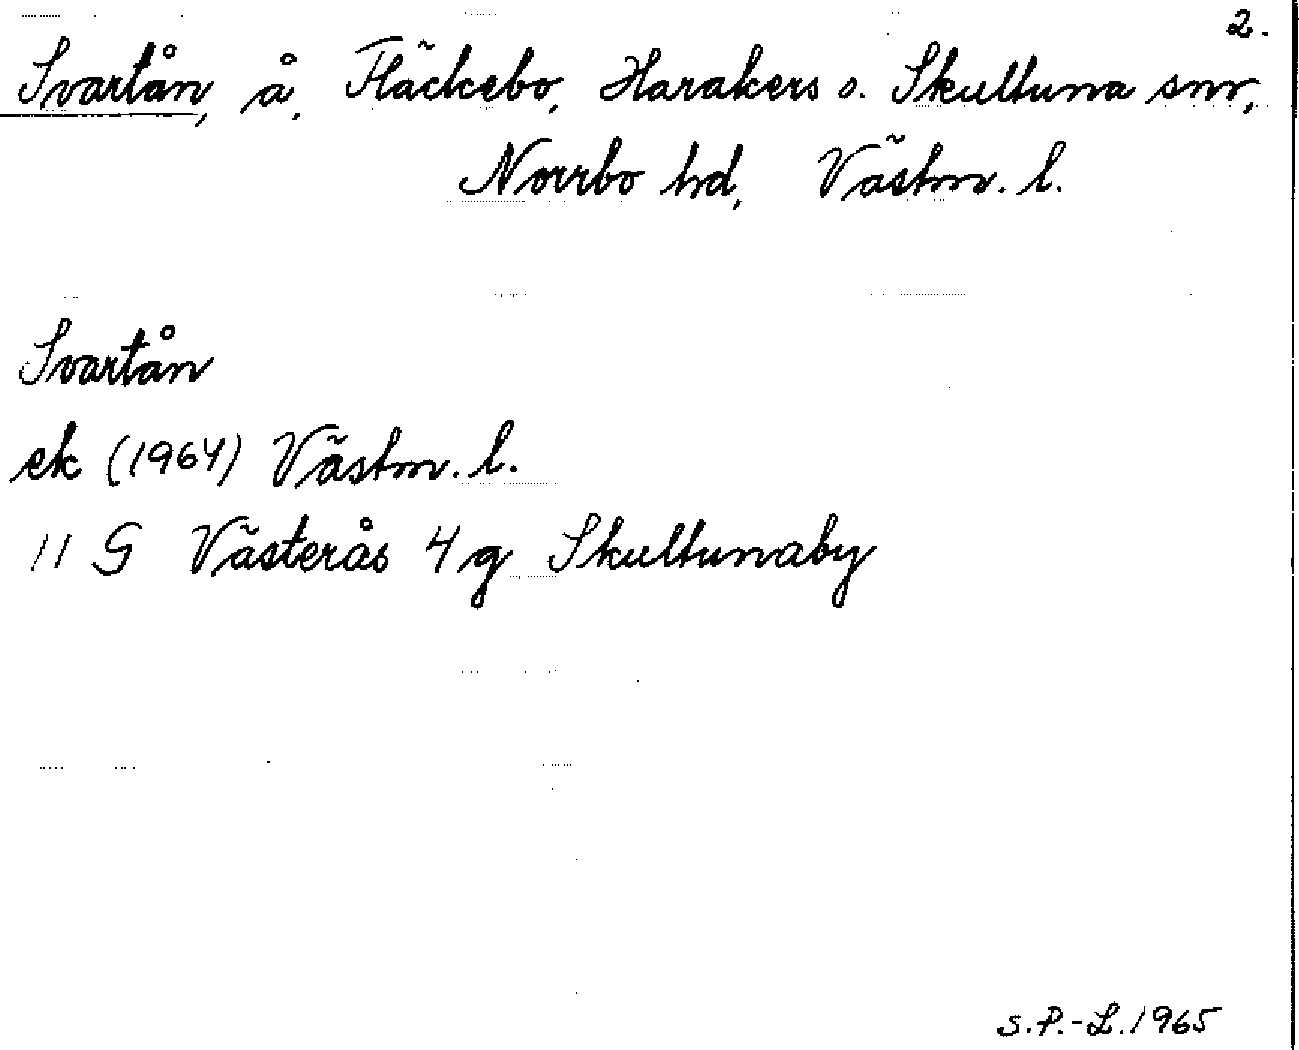 2.
Svartån, å, Fläckebo, Harakers o. Skultuna snr,
Norrbo hd, Västm. l.
Svartån
ek (1964) Västm. l.
11 G Västerås 4 g Skultunaby
S.P.-L. 1965